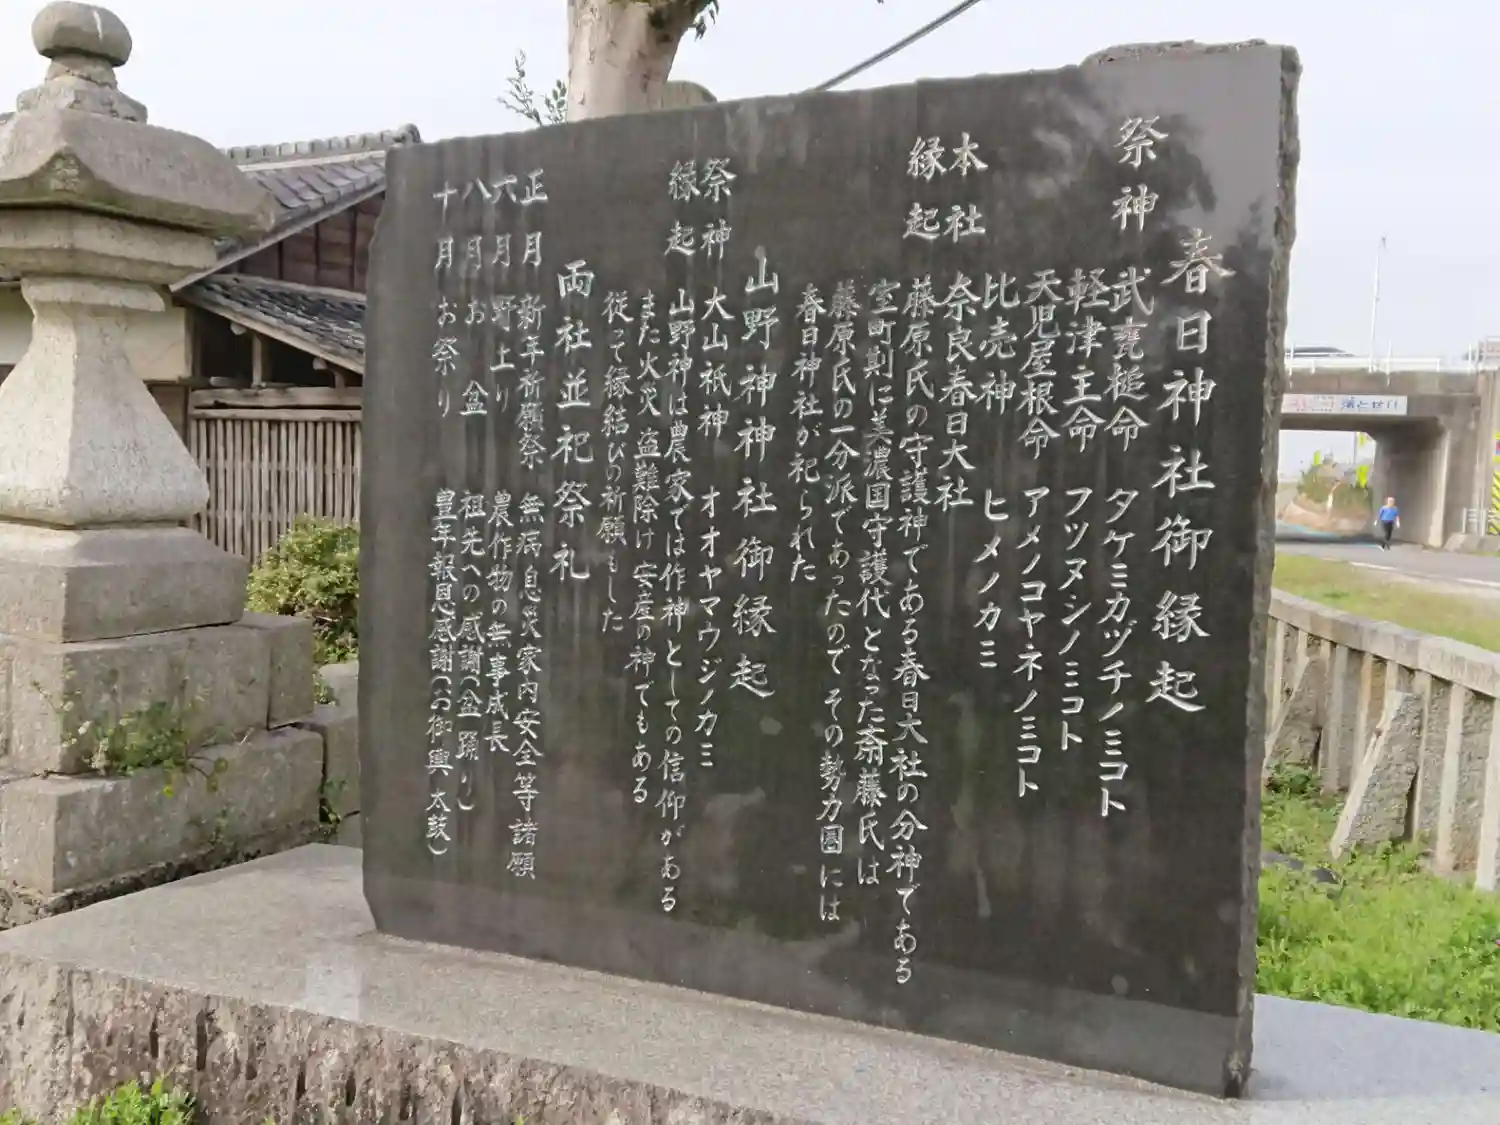 春日神社御縁起
祭神 武甕槌命 タケミカヅチノミコト
軽津主命 フツヌシノミコト
天児屋根命 アメノコヤネノミコト
比売神 ヒメノカミ
本社 奈良春日大社
縁起 藤原氏の守護神である春日大社の分神である
室町期に美濃国守護代となった斎藤氏は
藤原氏の一分派であったのでその勢力圏には
春日神社が祀られた
山野神神社御縁起
祭神 大山祇神 オオヤマウジノカミ
縁起 山野神は農家では作神としての信仰がある
また火災 盗難除け 安産の神でもある
従って縁結びの祈願もした
両社並祀祭礼
正月 新年祈願祭 無病息災家内安全等諸願
六月 野上り 農作物の無事成長
八月 お盆 祖先への感謝(盆踊り)
十月 お祭り 豊年報恩感謝(御輿 太鼓)